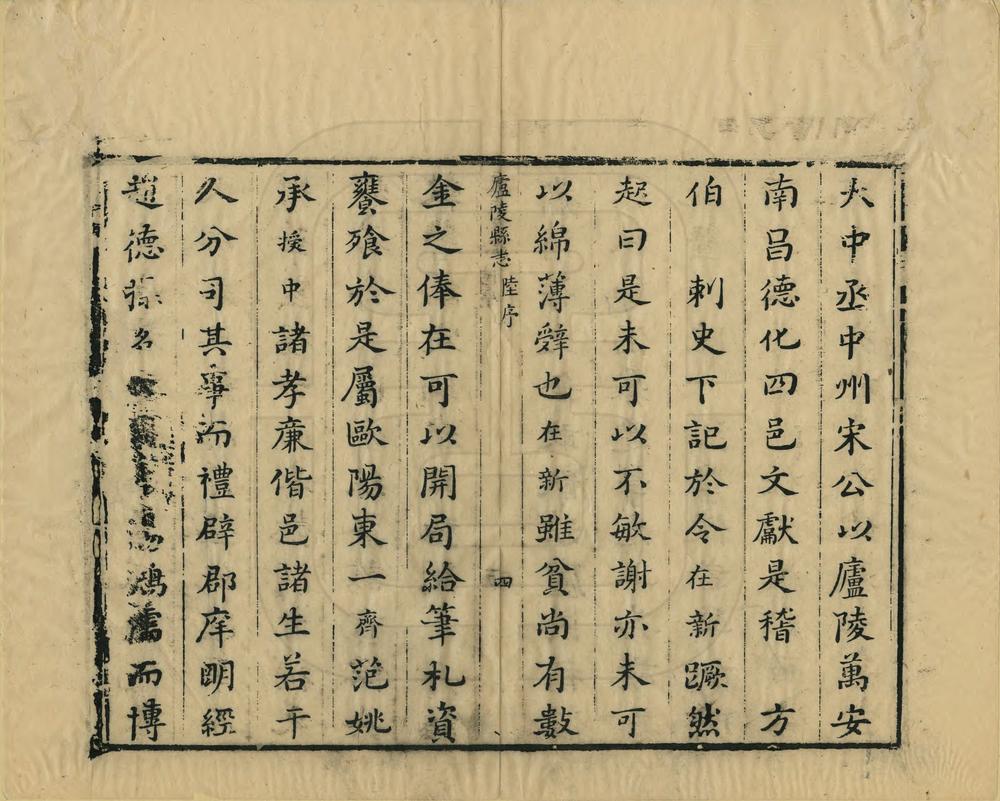 大中丞中州宋公以廬陵萬安
南昌德化四邑文獻是稽　方
伯　刺史下記於令在新蹶然
起曰是未可以不敏謝亦未可
以綿薄辤也在新雖貧尚有數
廬陵縣志　陸序　四
金之俸在可以開局給筆札資
饔飱於是屬歐陽東一齊范姚
承授中諸孝廉偕邑諸生若干
人分司其事而禮辟郡庠明經
趙德　名　鴻儒而博